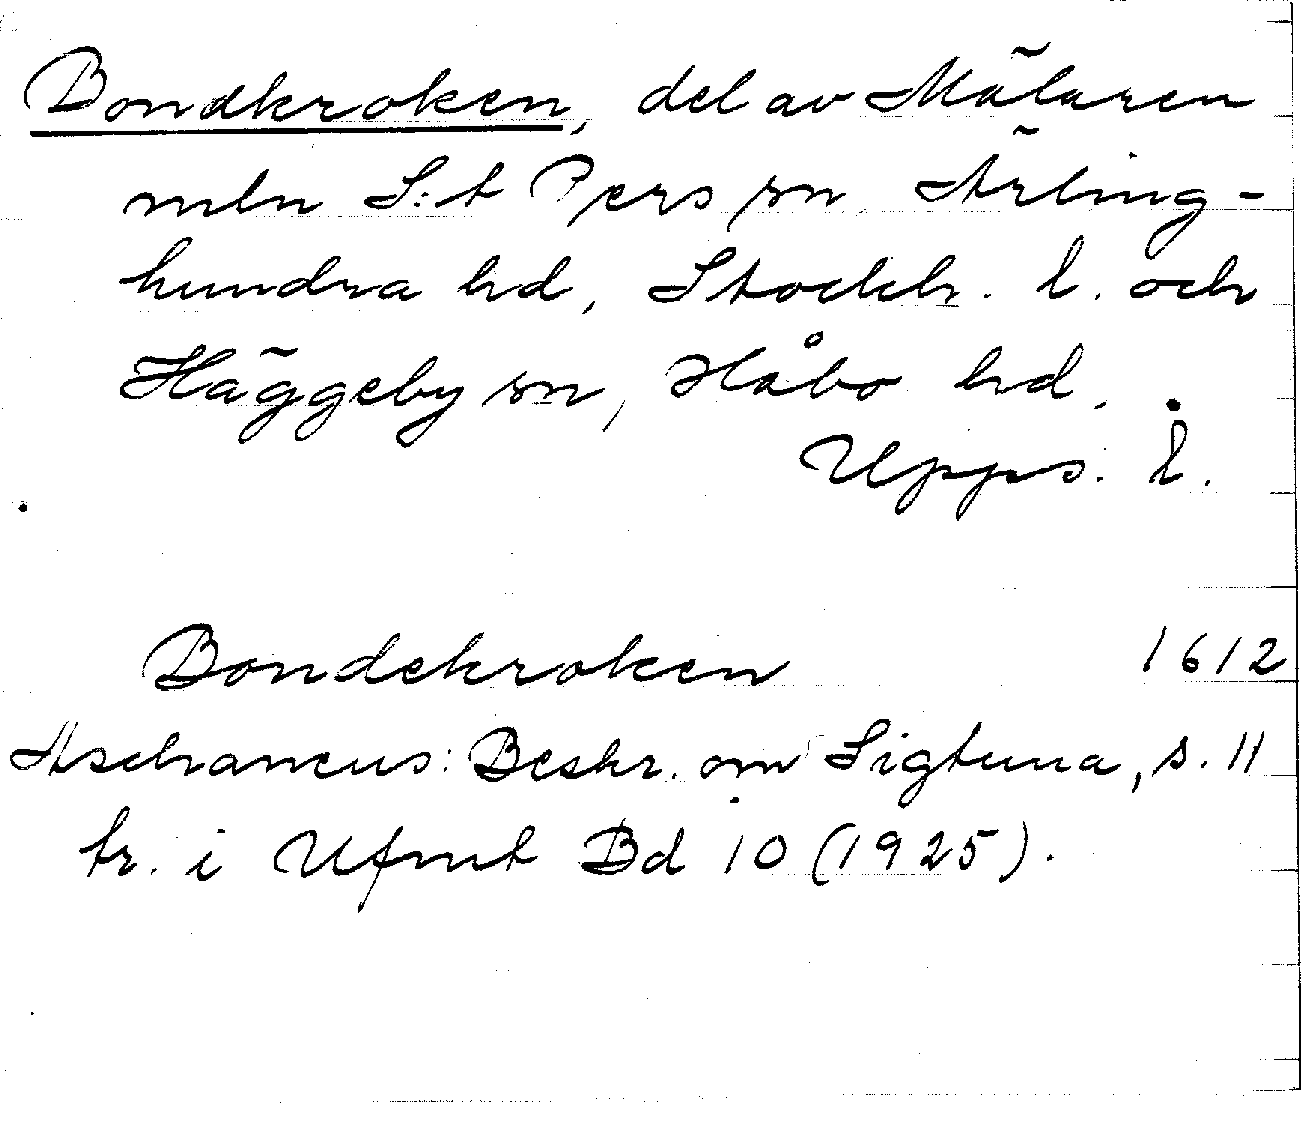 Bondkroken, del av Mälaren
mln S:t Pers sn. Ärling-
hundra hd, Stockh. l. och
Häggeby sn, Håbo hd,
Upps. l.
Bondekroken 1612
Aschaneus: Beskr. om Sigtuna, s. 11
tr. i Ufmt Bd 10 (1925).